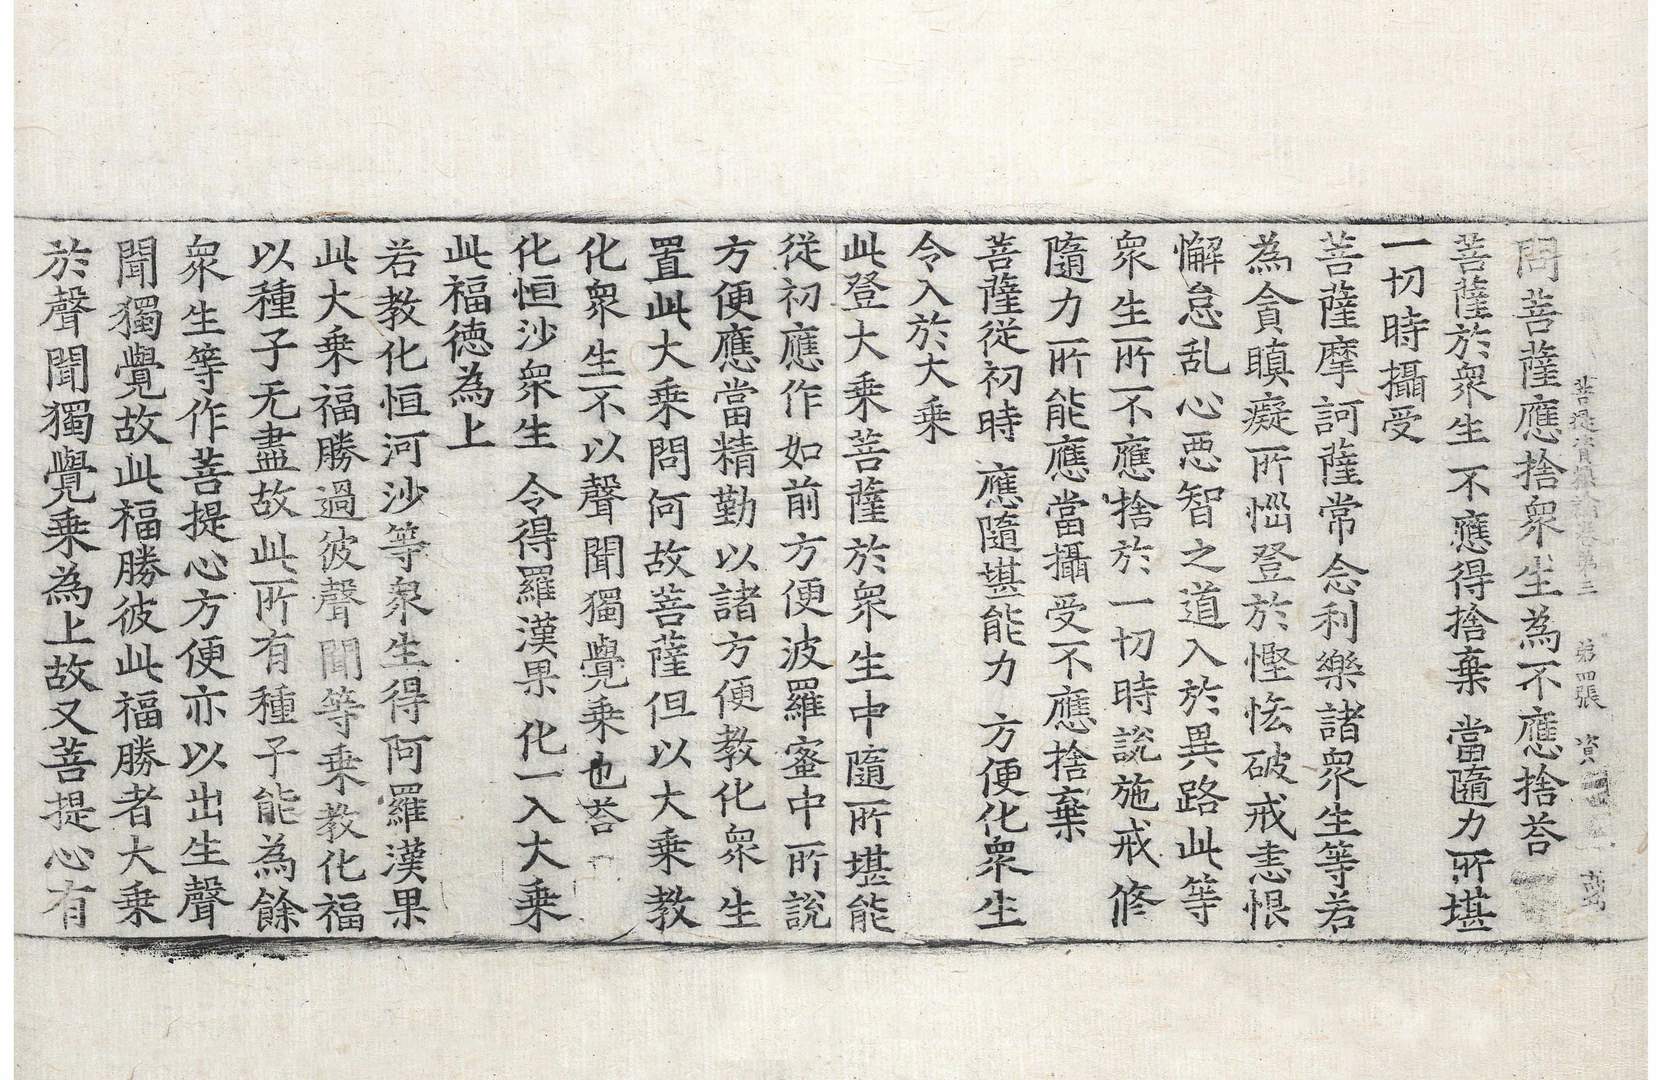 菩提資糧論卷第三 第四張 資
問菩薩應捨衆生為不應捨荅
菩薩於衆生 不應得捨棄 當隨力所堪
一切時攝受
菩薩摩訶薩常念利樂諸衆生等若
為貪瞋癡所惱登於慳悋破戒恚恨
懈怠乱心悪智之道入於異路此等
衆生所不應捨於一切時說施戒修
隨力所能應當攝受不應捨棄
菩薩從初時 應隨堪能力 方便化衆生
令入於大乘
此登大乘菩薩於衆生中隨所堪能
從初應作如前方便波羅蜜中所說
方便應當精勤以諸方便教化衆生
置此大乘問何故菩薩但以大乘教
化衆生不以聲聞獨覺乘也荅
化恒沙衆生 令得羅漢果 化一入大乘
此福德為上
若教化恒河沙等衆生得阿羅漢果
此大乘福勝過彼聲聞等乘教化福
以種子无盡故此所有種子能為餘
衆生等作菩提心方便亦以出生聲
聞獨覺故此福勝彼此福勝者大乘
於聲聞獨覺乘為上故又菩提心有